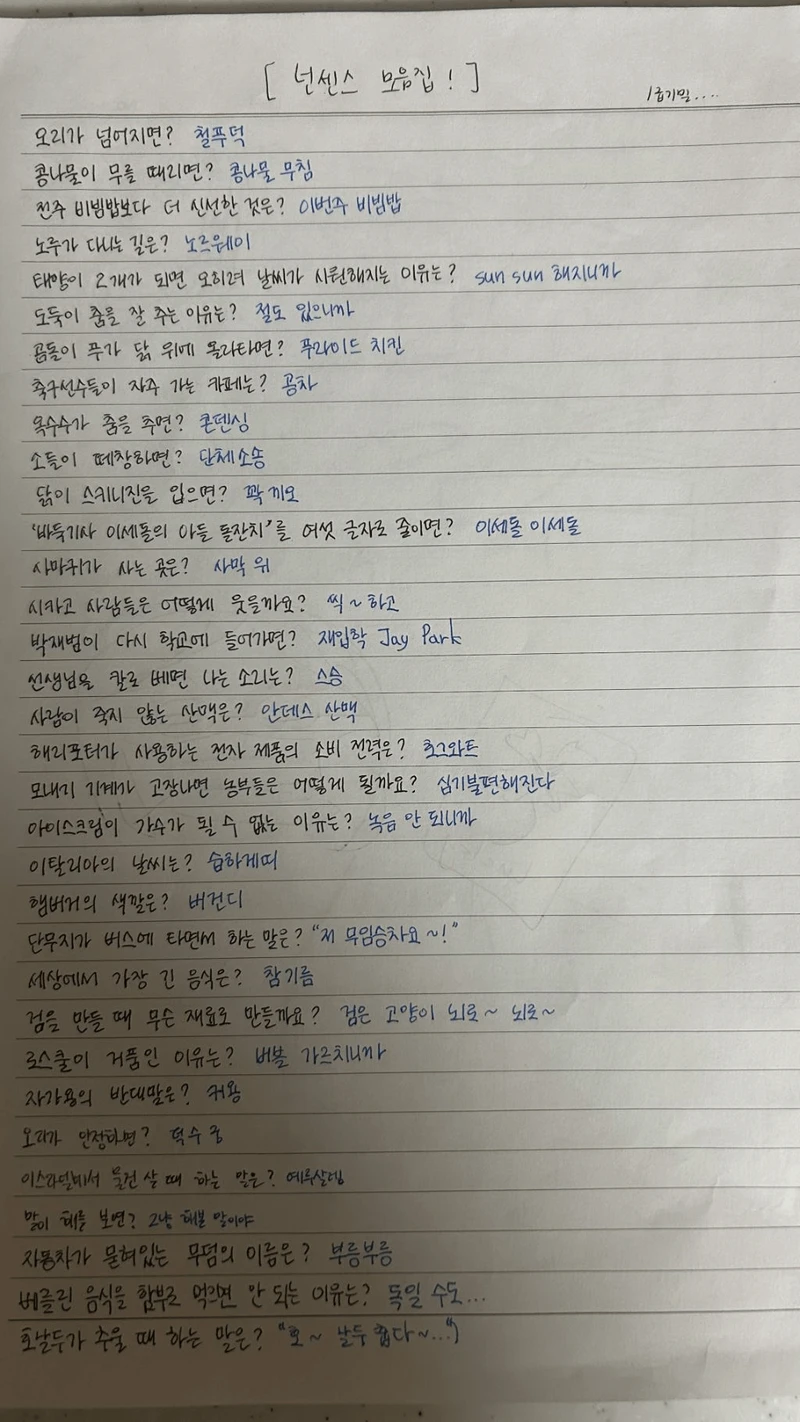 [ 넌센스 모음집! ]
1급기밀....
오리가 넘어지면? 철푸덕
콩나물이 무를 때리면? 콩나물 무침
전주 비빔밥보다 더 신선한 것은? 이번주 비빔밥
노루가 다니는 길은? 노르웨이
태양이 2개가 되면 오히려 날씨가 시원해지는 이유는? sun sun 해지니까
도둑이 춤을 잘 추는 이유는? 절도 있으니까
곰돌이 푸가 닭 위에 올라타면? 푸라이드 치킨
축구선수들이 자주 가는 카페는? 공차
옥수수가 춤을 추면? 콘덴싱
소들이 떼창하면? 단체소송
닭이 스키니진을 입으면? 꽉끼오
'바둑기사 이세돌의 아들 돌잔치'를 여섯 글자로 줄이면? 이세돌 이세돌
사마귀가 사는 곳은? 사막 위
시카고 사람들은 어떻게 웃을까요? 씩~하고
박재범이 다시 학교에 들어가면? 재입학 Jay Park
선생님을 칼로 베면 나는 소리는? 스승
사람이 죽지 않는 산맥은? 안데스 산맥
해리포터가 사용하는 전자 제품의 소비 전력은? 호그와트
모내기 기계가 고장나면 농부들은 어떻게 될까요? 심기불편해진다
아이스크림이 가수가 될 수 없는 이유는? 녹음 안 되니까
이탈리아의 날씨는? 습하게띠
햄버거의 색깔은? 버건디
단무지가 버스에 타면서 하는 말은? "저 무임승차요~!"
세상에서 가장 긴 음식은? 참기름
검을 만들 때 무슨 재료로 만들까요? 검은 고양이 뇌로~ 뇌로~
로스쿨이 거품인 이유는? 버블 가르치니까
자가용의 반대말은? 커용
오리가 안정하면? 덕수궁
이스라엘에서 물건 살 때 하는 말은? 예루살렘
말이 해를 보면? 그냥 해본 말이야
자동차가 묻혀있는 무덤의 이름은? 부릉부릉
베를린 음식을 함부로 먹으면 안 되는 이유는? 독일 수도...
호날두가 추울 때 하는 말은? "호~ 날두 춥다~..."